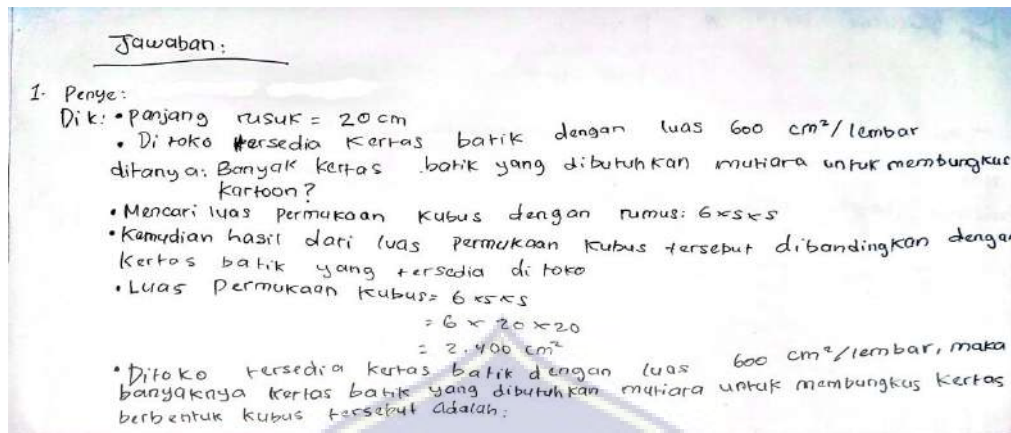 Jawaban:
1. Penye:
Dik: • Panjang rusuk = 20 cm
• Di toko tersedia kertas batik dengan luas 600 cm²/lembar
ditanya: Banyak kertas batik yang dibutuhkan mutiara untuk membungkus
kartoon?
• Mencari luas permukaan kubus dengan rumus: 6×s×s
• Kemudian hasil dari luas permukaan kubus tersebut dibandingkan denga
kertas batik yang tersedia di toko
• Luas Permukaan kubus = 6 ×s×s
= 6 × 20 ×20
= 2.400 cm²
• Ditoko tersedia kertas batik dengan luas 600 cm²/lembar, maka
banyaknya kertas batik yang dibutuhkan mutiara untuk membungkus kertas
berbentuk kubus tersebut adalah: